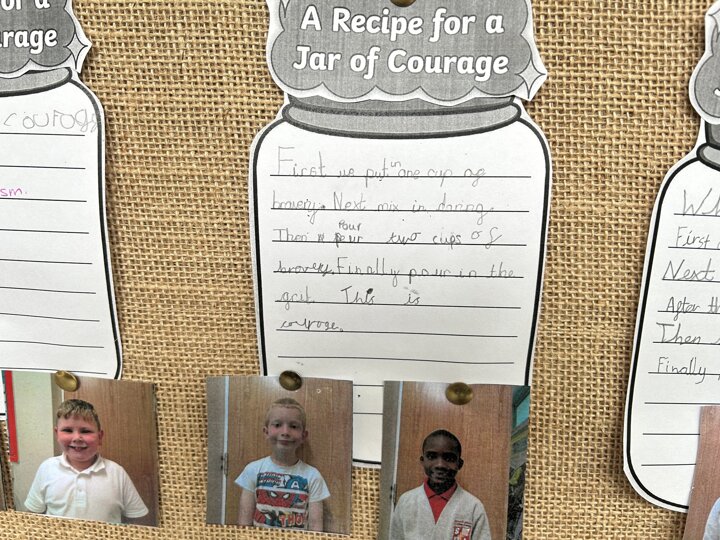 or a
rage
courage
sm.
A Recipe for a
Jar of Courage
First we put in one cup og
bravery. Next mix in daring.
Then pour two cups of
bravery. Finally pour in the
grit. This is
courage.
Wh
First
Next
After th
Then
Finally